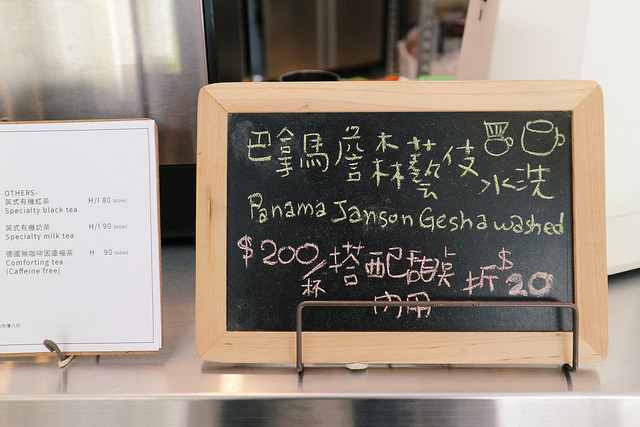 OTHERS-
英式有機紅茶 H/I 80
Specialty black tea
英式有機奶茶 H/I 90
Specialty milk tea
德國無咖啡因康福茶 H 90
Comforting tea
(Caffeine free)
巴拿馬詹森藝伎
水洗
Panama Janson Gesha washed
$200/杯 搭配甜點折$20
內用